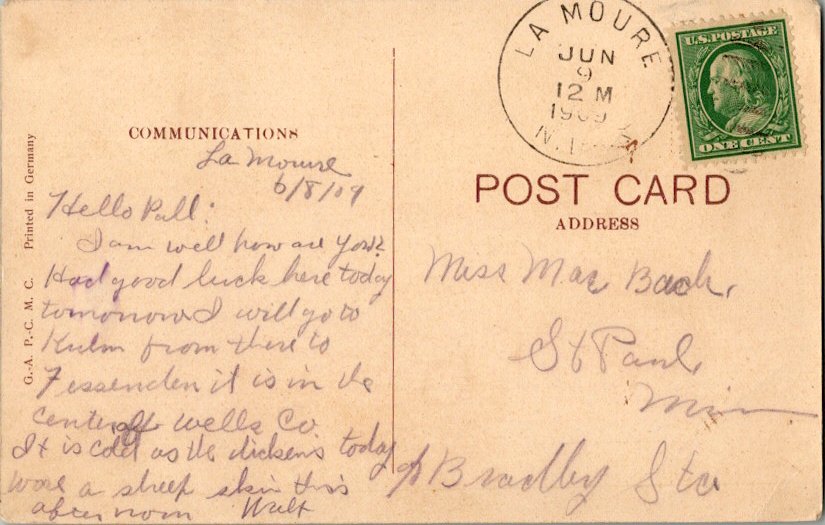 COMMUNICATIONS
La Moure
6/8/09
Hello Pall:
I am well how are you?
Had good luck here today
tomorrow I will go to
Kulm from there to
Fessenden it is in the
center of Wells Co
It is cold as the dickens today
wore a sheep skin this
afternoon Walt
G.-A. P.-C. M. C. Printed in Germany
LA MOURE
JUN
9
12 M
1909
N.
U.S. POSTAGE
ONE CENT
POST CARD
ADDRESS
Miss Mae Bach,
St Paul,
Minn
Bradley Sta